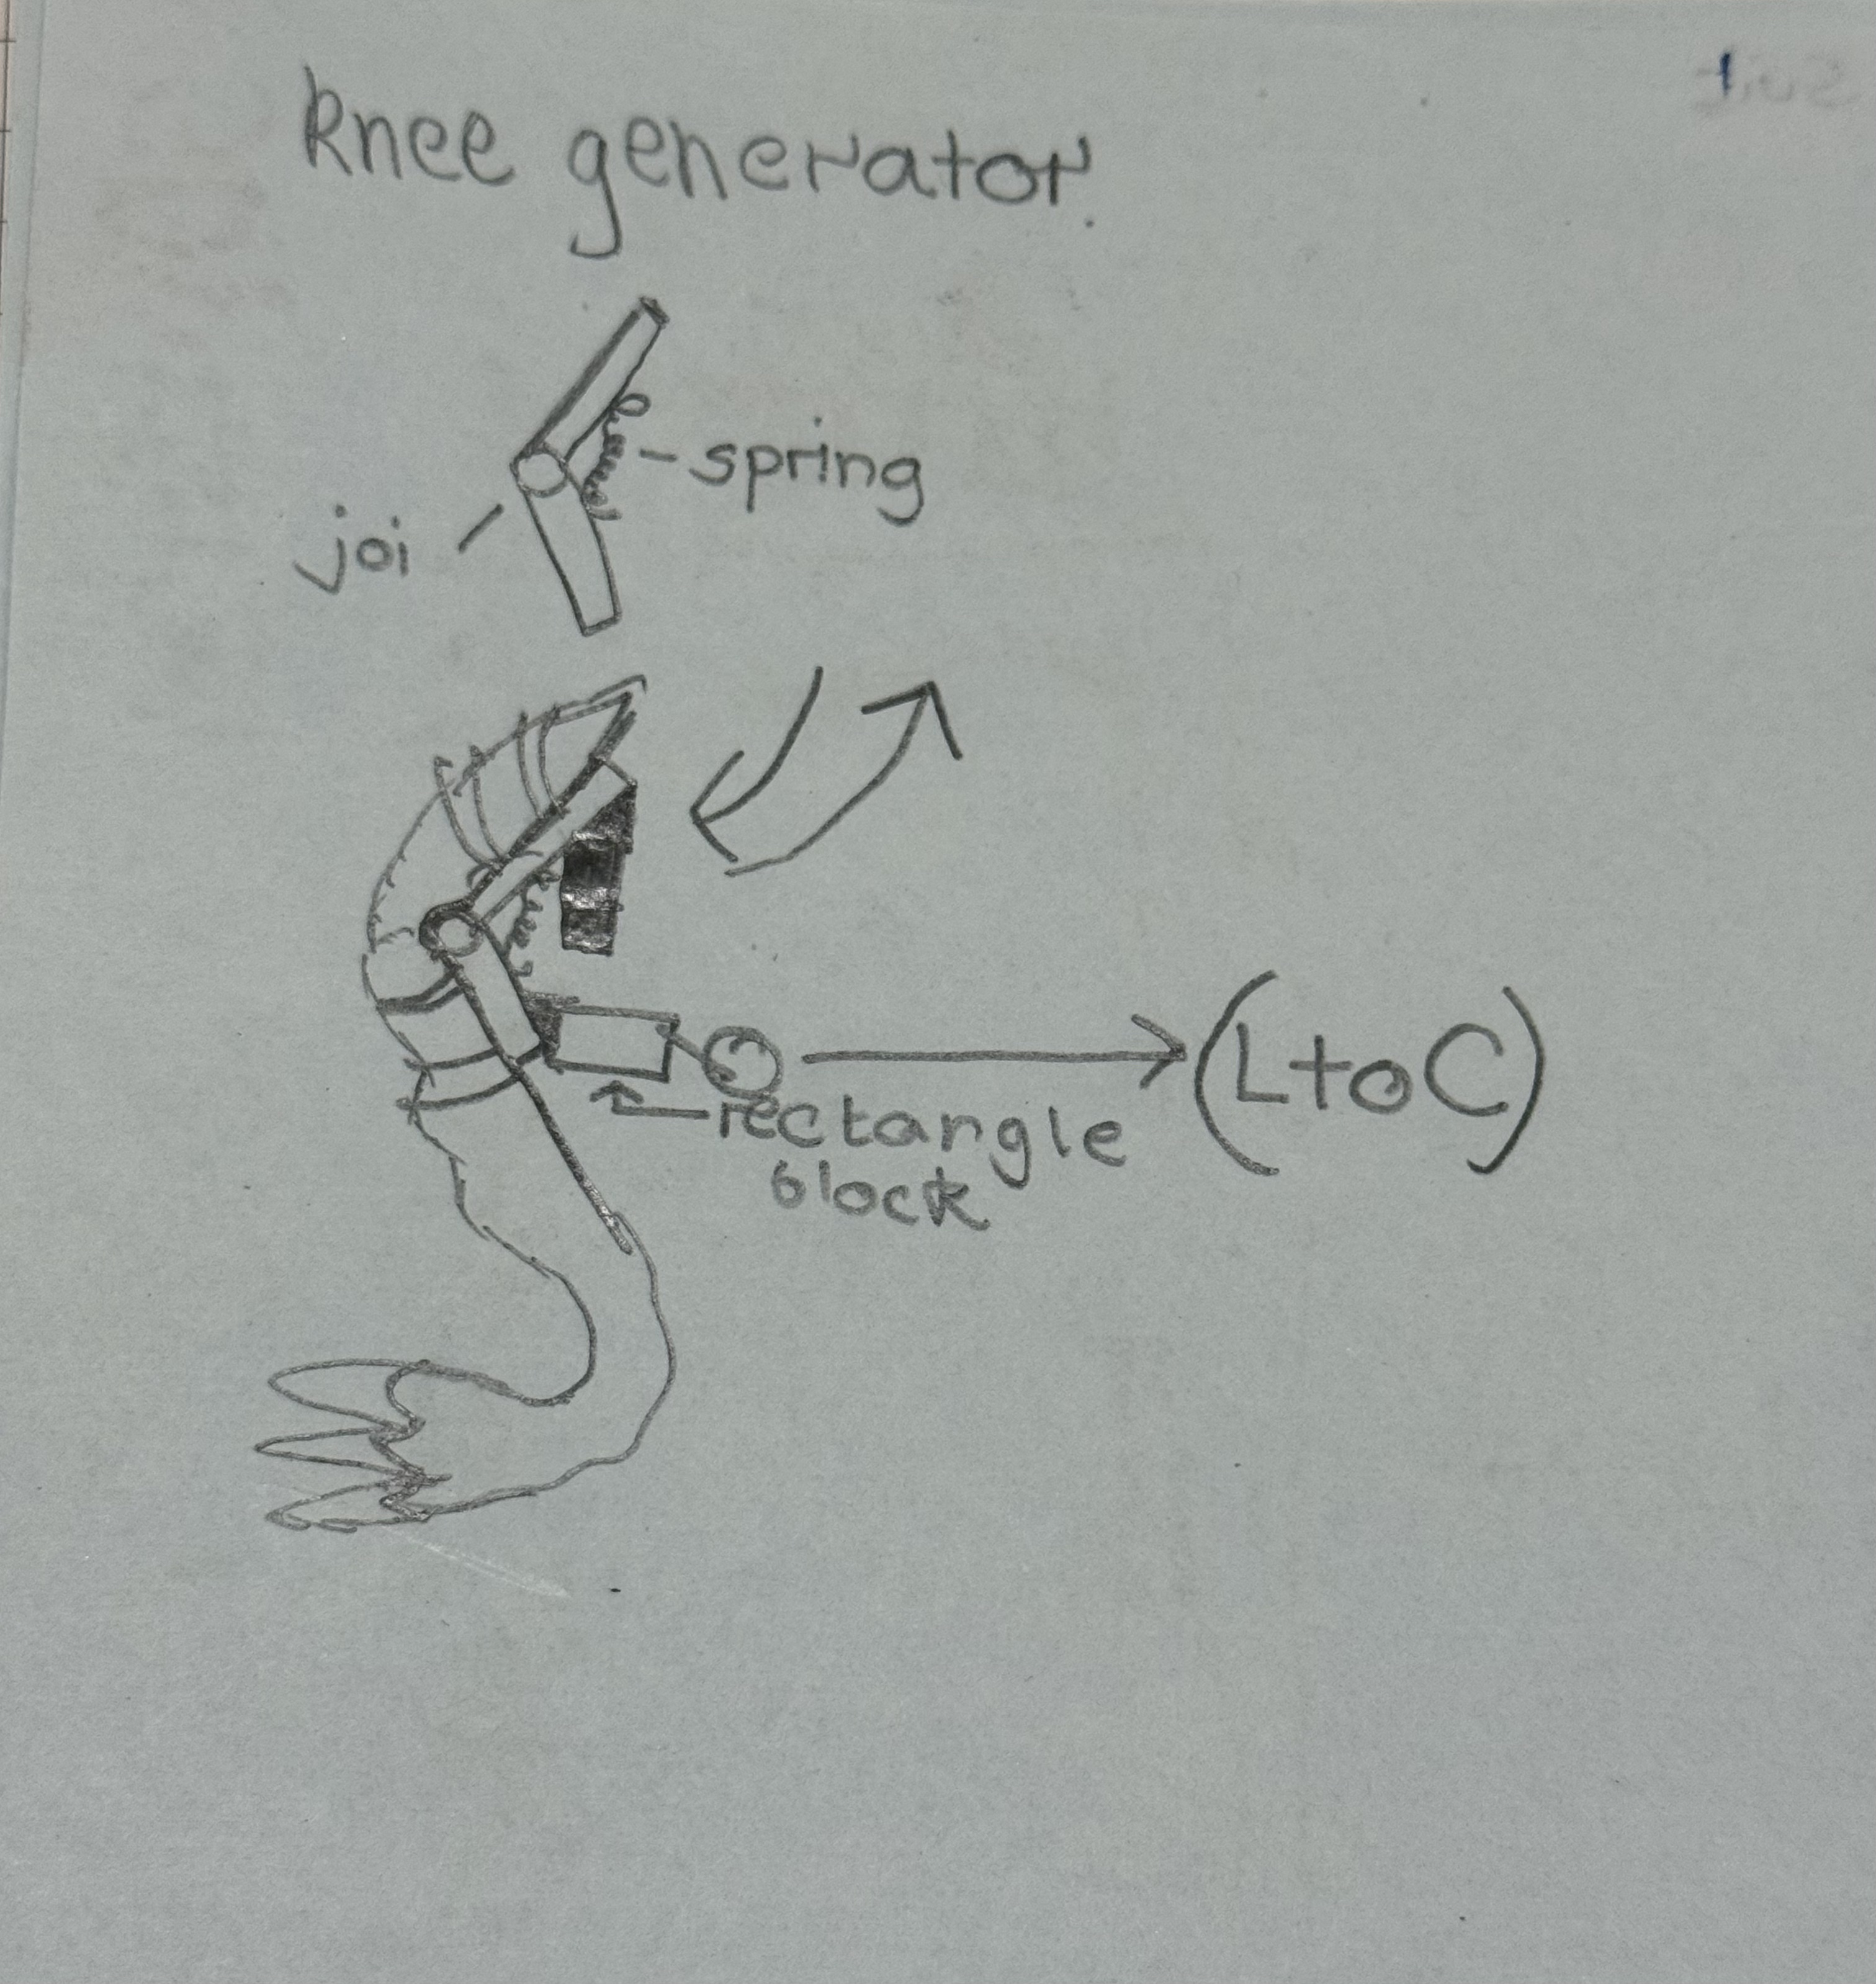 knee generator.
spring
joi
(L to C)
rectangle
block